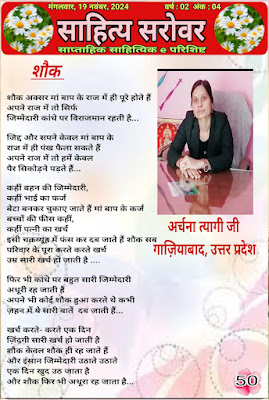 मंगलवार, 19 नवंबर, 2024
वर्ष : 02 अंक : 04
साहित्य सरोवर
साप्ताहिक साहित्यिक e परिशिष्ट
शौक
शौक अक्सर मां बाप के राज में ही पूरे होते हैं
अपने राज में तो सिर्फ
जिम्मेदारी कांधे पर विराजमान रहती है...
जिद्द और सपने केवल मां बाप के
राज में ही पंख फैला सकते हैं
अपने राज में तो हमें केवल
पैर सिकोड़ने पड़ते हैं...
कहीं बहन की जिम्मेदारी,
कहीं भाई का फर्ज
बेटा बनकर चुकाए जाते हैं मां बाप के कर्ज
बच्चों की फीस कहीं,
कहीं पत्नी का खर्च
इसी चक्रव्यूह में फंस कर दब जाते हैं शौक सब
परिवार के पूरा करते करते खर्च
उस सारी खर्च हो जाती है ....
फिर भी कांधे पर बहुत सारी जिम्मेदारी
अधूरी रह जाती हैं
अपने भी कोई शौक हुआ करते थे कभी
ज़हन में ये सारी बातें दब जाती हैं...
खर्च करते- करते एक दिन
ज़िंदगी सारी खर्च हो जाती है
शौक केवल शौक ही रह जाते हैं
और इंसान जिम्मेदारी उठाते उठाते
एक दिन खुद उठ जाता है
और शौक फिर भी अधूरा रह जाता है...
अर्चना त्यागी जी
गाज़ियाबाद, उत्तर प्रदेश
50